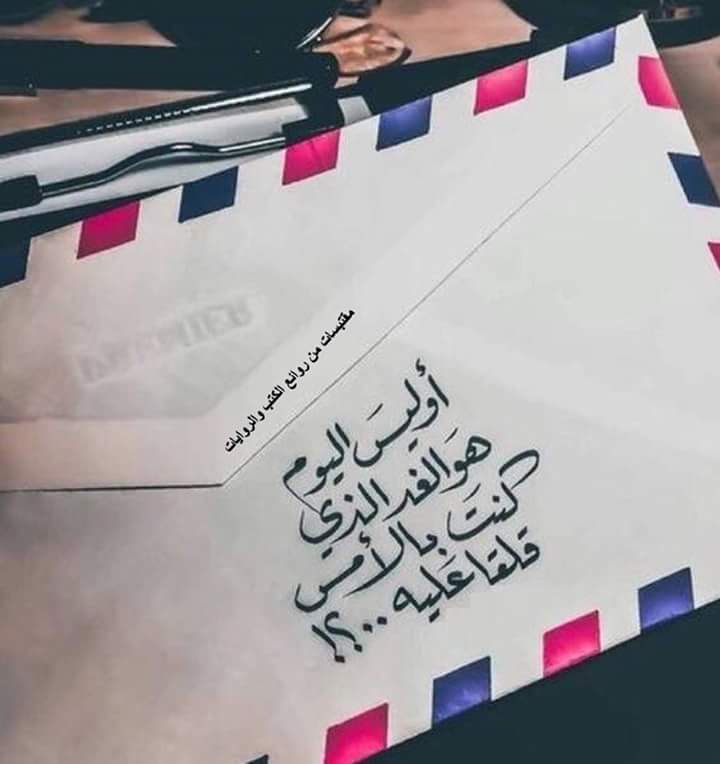 مقتبسات من روائع الكتب والروايات
أوليسَ اليوم
هوَ الغد الذي
كنتَ بالأمس
قلقا عليه ..؟!